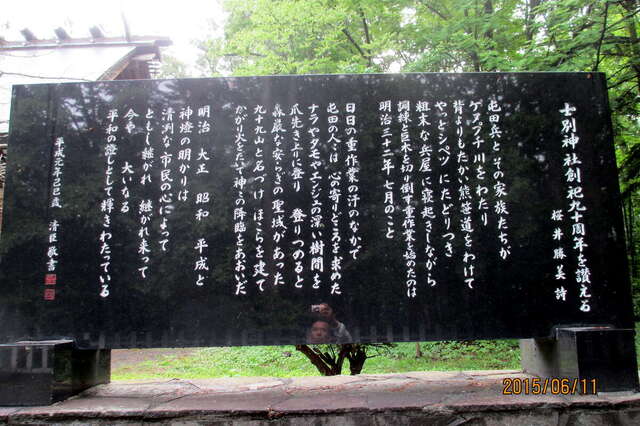 士別神社創祀九十周年を讃える
桜井勝美 詩
屯田兵とその家族たちが
ケヌプチ川をわたり
背よりもたかい熊笹道をわけて
やっとシベツにたどりつき
粗末な兵屋に寝起きしながら
訓練と巨木を切り倒す重作業を始めたのは
明治三十二年七月のこと
日日の重作業の汗のなかで
屯田の人々は心の寄りどころを求めた
ナラやタモやエンジュの深い樹間を
爪先き上りに登り 登りつめると
森厳な安らぎの聖域があった
九十九山と名づけ ほこらを建て
かがり火をたて神々の降臨をあおいだ
明治 大正 昭和 平成と
神燈の明かりは
清冽な市民の心によって
ともし継がれ 継がれ来って
今や 大いなる
平和の燈しとして輝きわたっている
平成元年己巳歳 清臣敬書
2015/06/11